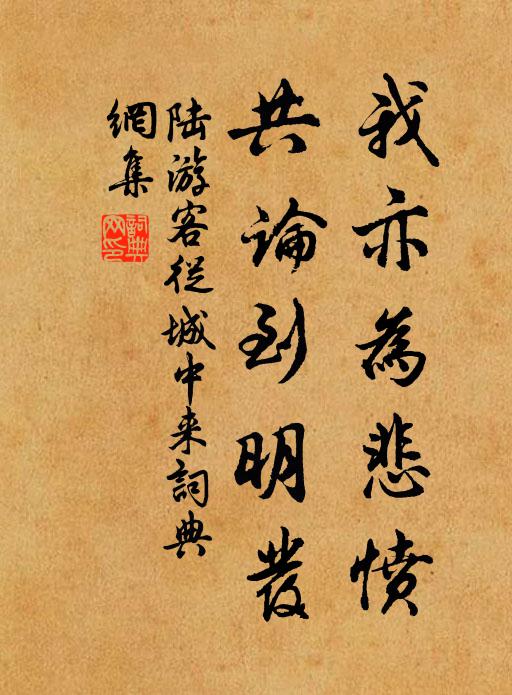 我亦為悲憤
共論到明發
陆游客從城中来詞典
網集
詞典
网印